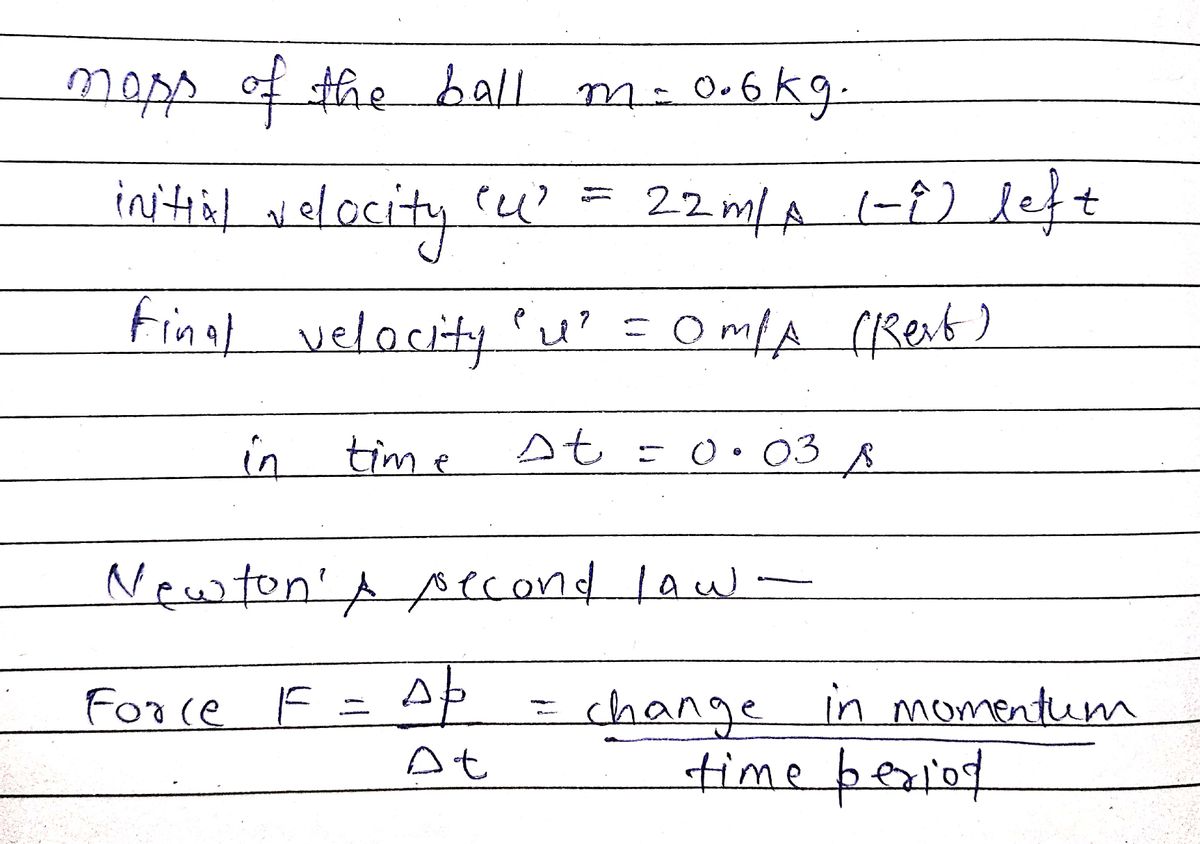 mass of the ball m = 0.6kg.
initial velocity 'u' = 22 m/s (-î) left
final velocity 'u' = 0 m/s (Rest)
in time Δt = 0.03 s
Newton's second law —
Force F = Δp/Δt = change in momentum/time period